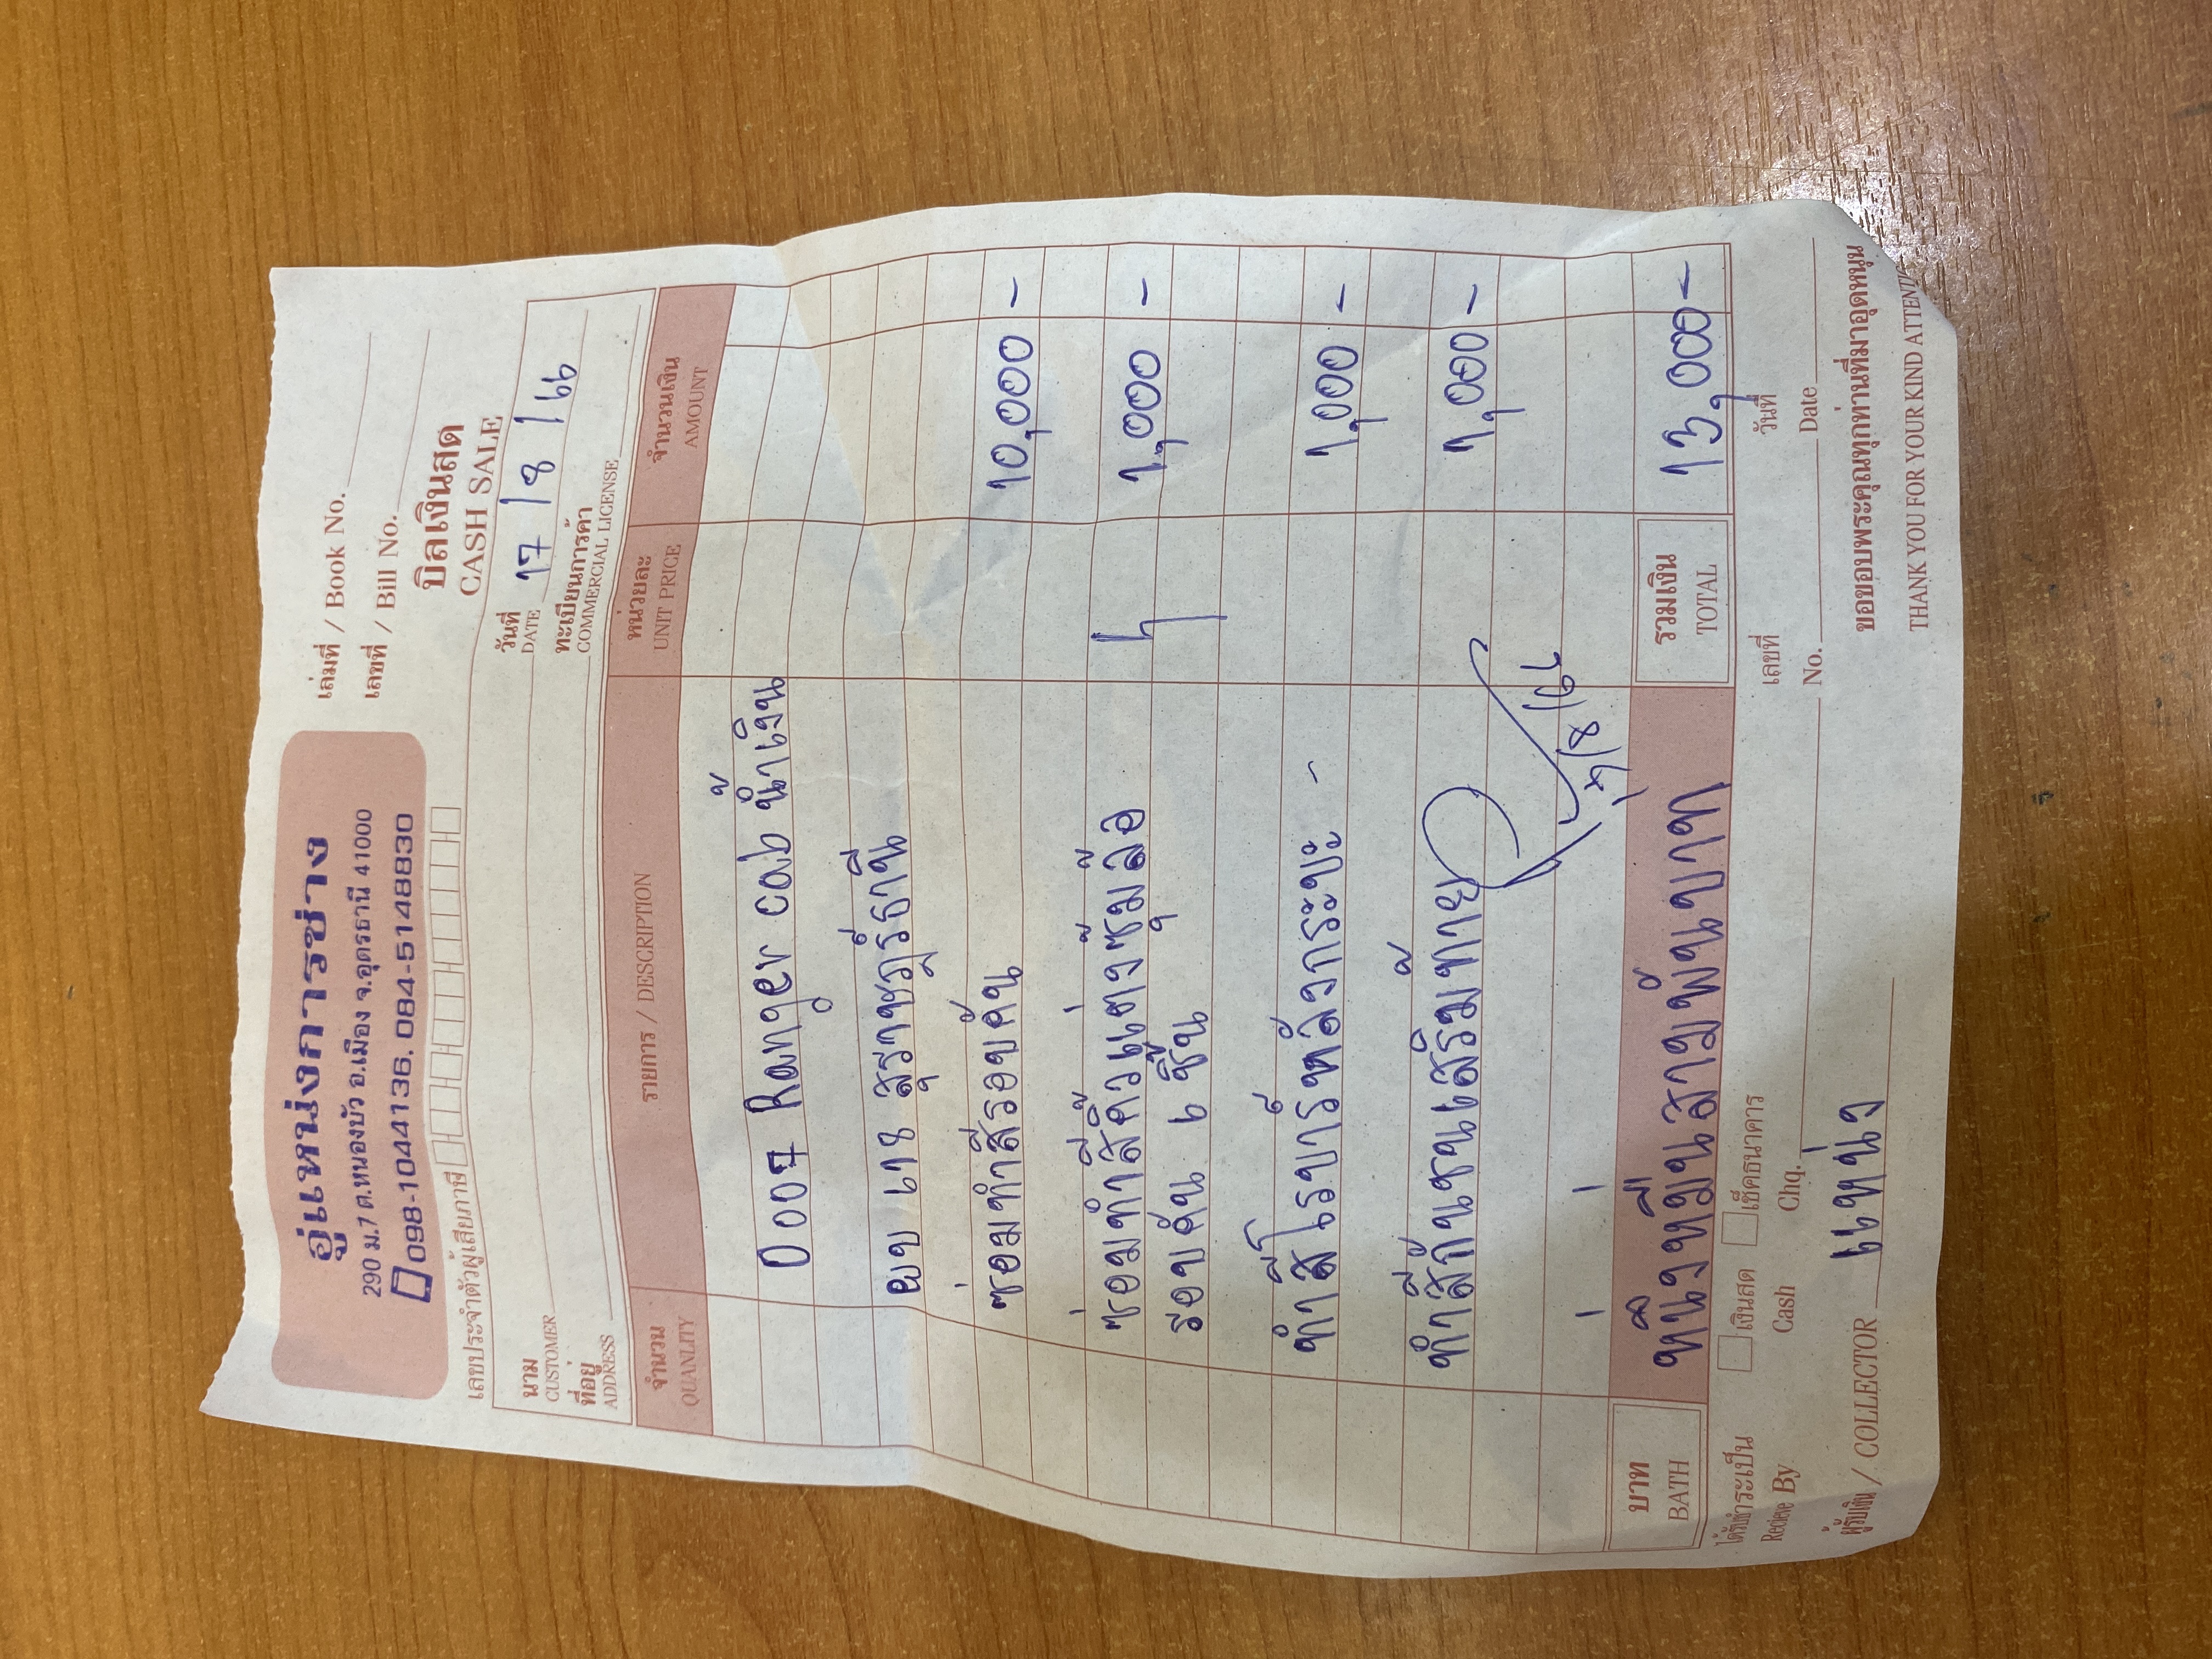 อู่แหน่งการช่าง
290 ม.7 ต.หนองบัว อ.เมือง จ.อุดรธานี 41000
098-1044136. 084-5148830
เล่มที่ / Book No.
เลขที่ / Bill No.
บิลเงินสด
CASH SALE
เลขประจำตัวผู้เสียภาษี
วันที่ 17 / 8 / 66
DATE
นาม
CUSTOMER
ทะเบียนการค้า
COMMERCIAL LICENSE
ที่อยู่
ADDRESS
จำนวน รายการ / DESCRIPTION หน่วยละ จำนวนเงิน
QUANLITY UNIT PRICE AMOUNT
Ranger cab น้ำเงิน
ผบ 418 สุราษฎร์ธานี
ซ่อมทำสีรอบคัน 10,000 -
ซ่อมทำสีคิ้วแต่งซุ้มล้อ 1,000 -
รอบคัน 6 ชิ้น
ทำสีโรบาร์หลังกระบะ - 1,000 -
ทำสีกันชนเสริมท้าย 1,000 -
17/8/66
บาท หนึ่งหมื่นสามพันบาท รวมเงิน 13,000 -
BATH TOTAL
ได้รับชำระเป็น เงินสด เช็คธนาคาร เลขที่ วันที่
Recieve By Cash Chq. No. Date
ผู้รับเงิน / COLLECTOR แหน่ง
ขอขอบพระคุณทุกท่านที่มาอุดหนุน
THANK YOU FOR YOUR KIND